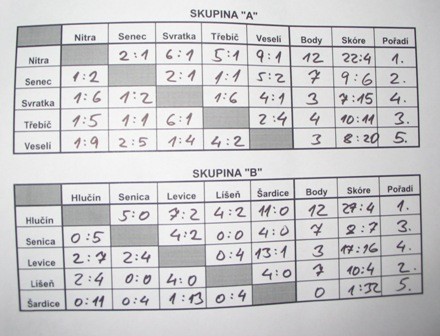 SKUPINA "A"
Nitra Senec Svratka Třebíč Veselí Body Skóre Pořadí
Nitra 2:1 6:1 5:1 9:1 12 22:4 1.
Senec 1:2 2:1 1:1 5:2 7 9:6 2.
Svratka 1:6 1:2 1:6 4:1 3 7:15 4.
Třebíč 1:5 1:1 6:1 2:4 4 10:11 3.
Veselí 1:9 2:5 1:4 4:2 3 8:20 5.
SKUPINA "B"
Hlučín Senica Levice Líšeň Šardice Body Skóre Pořadí
Hlučín 5:0 7:2 4:2 11:0 12 27:4 1.
Senica 0:5 4:2 0:0 4:0 7 8:7 3.
Levice 2:7 2:4 0:4 13:1 3 17:16 4.
Líšeň 2:4 0:0 4:0 4:0 7 10:4 2.
Šardice 0:11 0:4 1:13 0:4 0 1:32 5.